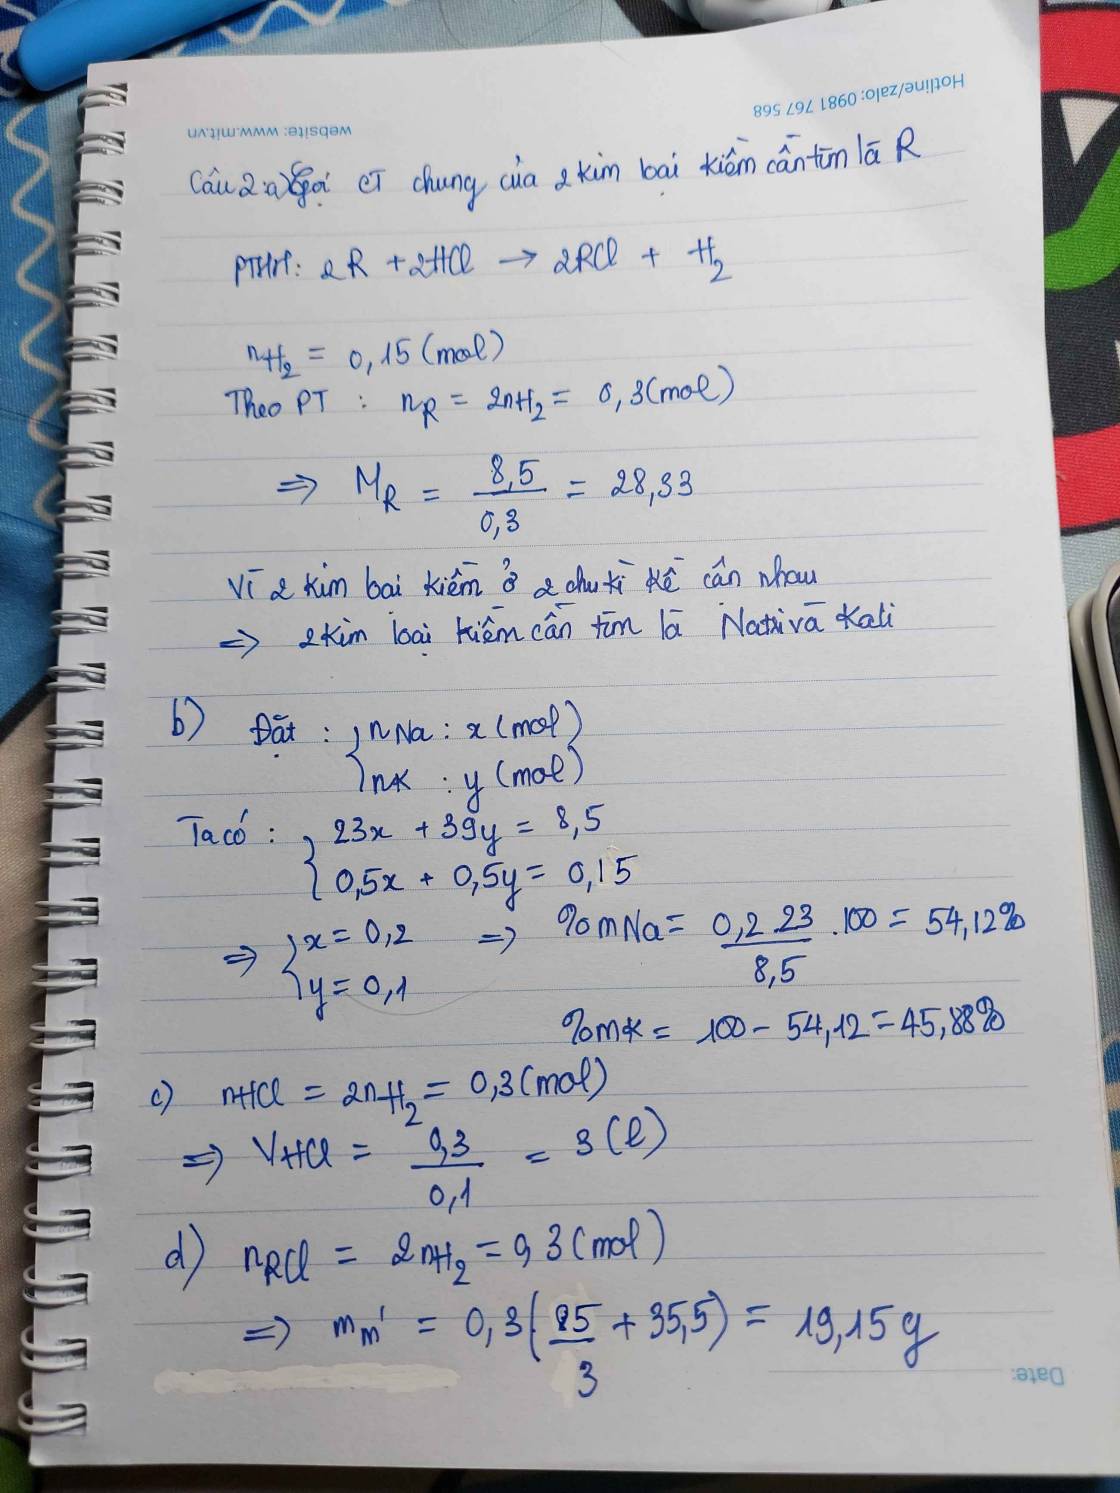 Hotline/zalo: 0981 767 568
website: www.mit.vn
Câu 2: a) Gọi CT chung của 2 kim loại kiềm cần tìm là R
PTHH: 2R + 2HCl → 2RCl + H₂
nH₂ = 0,15 (mol)
Theo PT : nR = 2nH₂ = 0,3 (mol)
⇒ MR = 8,5/0,3 = 28,33
Vì 2 kim loại kiềm ở 2 chu kì kề cần nhau
⇒ 2 kim loại kiềm cần tìm là Natri và Kali
b) Đặt : { nNa : x (mol)
nK : y (mol)
Ta có : { 23x + 39y = 8,5
0,5x + 0,5y = 0,15
⇒ { x = 0,2 ⇒ %mNa = 0,2.23/8,5 .100 = 54,12%
y = 0,1
%mK = 100 - 54,12 = 45,88%
c) nHCl = 2nH₂ = 0,3 (mol)
⇒ VHCl = 0,3/0,1 = 3 (l)
d) nRCl = 2nH₂ = 0,3 (mol)
⇒ mm' = 0,3 (85/3 + 35,5) = 19,15g
Date: